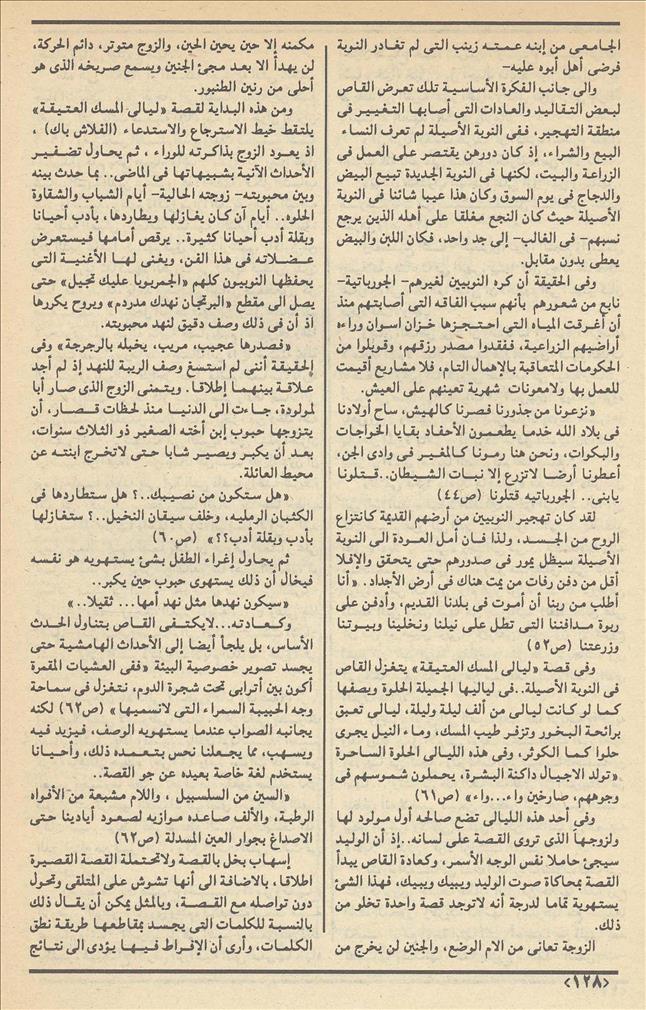 الجامعى من إبنه عمته زينب التى لم تغادر النوبة
فرضى أهل أبوه عليه-
والى جانب الفكرة الأساسية تلك تعرض القاص
لبعض التقاليد والعادات التى أصابها التغيير فى
منطقة التهجير، ففى النوبة الأصيلة لم تعرف النساء
البيع والشراء، إذ كان دورهن يقتصر على العمل فى
الزراعة والبيت، لكنها فى النوبة الجديدة تبيع البيض
والدجاج فى يوم السوق وكان هذا عيبا شائنا فى النوبة
الأصيلة حيث كان النجع مغلقا على أهله الذين يرجع
نسبهم- فى الغالب- إلى جد واحد، فكان اللبن والبيض
يعطى بدون مقابل.
وفى الحقيقة أن كره النوبيين لغيرهم- الجورباتية-
نابع من شعورهم بأنهم سبب الفاقه التى أصابتهم منذ
أن أغرقت المياه التى احتجزها خزان اسوان وراءه
أراضيهم الزراعية، ففقدوا مصدر رزقهم، وقوبلوا من
الحكومات المتعاقبة بالإهمال التام، فلا مشاريع أقيمت
للعمل بها ولامعونات شهرية تعينهم على العيش.
«نزعونا من جذورنا فصرنا كالهيش، ساح أولادنا
فى بلاد الله خدما يطعمون الأحفاد بقايا الخواجات
والبكوات، ونحن هنا رمونا كالمغير فى وادى الجن،
أعطونا أرضا لاتزرع إلا نبات الشيطان..قتلونا
يابنى.. الجورباتيه قتلونا (ص٤٤)
لقد كان تهجير النوبيين من أرضهم القديمة كانتزاع
الروح من الجسد، ولذا فان أمل العودة الى النوبة
الأصيلة سيظل يمور فى صدورهم حتى يتحقق والإفلا
أقل من دفن رفات من يمت هناك فى أرض الأجداد. «أنا
أطلب من ربنا أن أموت فى بلدنا القديم، وأدفن على
ربوة مدافننا التى تطل على نيلنا ونخلينا وبيوتنا
وزرعتنا (ص٥٢)
وفى قصة «ليالى المسك العتيقة» يتغزل القاص
فى النوبة الأصيلة..فى لياليها الجميلة الحلوة ويصفها
كما لو كانت ليالى من ألف ليلة وليلة، ليالى تعبق
برائحة البخور وتزفر طيب المسك، وماء النيل يجرى
حلوا كما الكوثر، وفى هذه الليالى الحلوة الساحرة
«تولد الاجيال داكنة البشرة، يحملون شموسهم فى
وجوههم، صارخين واء...واء» (ص٦١)
وفى أحد هذه الليالى تضع صالحه أول مولود لها
ولزوجها الذى تروى القصة على لسانه..إذ أن الوليد
سيجئ حاملا نفس الوجه الأسمر، وكعادة القاص يبدأ
القصة بمحاكاة صوت الوليد ويبيك ويبيك، فهذا الشئ
يستهوية تماما لدرجة أنه لاتوجد قصة واحدة تخلو من
ذلك.
الزوجة تعانى من الام الوضع، والجنين لن يخرج من
مكمنه إلا حين يحين الحين، والزوج متوتر، دائم الحركة،
لن يهدأ الا بعد مجئ الجنين ويسمع صريخه الذى هو
أحلى من رنين الطنبور.
ومن هذه البداية لقصة «ليالى المسك العتيقة»
يلتقط خيط الاسترجاع والاستدعاء (الفلاش باك) ،
اذ يعود الزوج بذاكرته للوراء ، ثم يحاول تضفير
الأحداث الآتية بشبيهاتها فى الماضى.. بما حدث بينه
وبين محبوبته- زوجته الحالية- أيام الشباب والشقاوة
الحلوه.. أيام آن كان يغازلها ويطاردها، بأدب أحيانا
وبقلة أدب أحيانا كثيرة.. يرقص أمامها فيستعرض
عضلاته فى هذا الفن، ويغنى لها الأغنية التى
يحفظها النوبيون كلهم «الجمربوبا عليك تجيل» حتى
يصل الى مقطع «البرتجان نهدك مدردم» ويروح يكررها
اذ أن فى ذلك وصف دقيق لنهد محبوبته.
«فصدرها عجيب، مريب، يخبله بالرجرجة» وفى
الحقيقة أننى لم استسغ وصف الريبة للنهد إذ لم أجد
علاقة بينهما إطلاقا. ويتمنى الزوج الذى صار أبا
لمولودة، جاءت الى الدنيا منذ لحظات قصار، أن
يتزوجها حبوب إبن أخته الصغير ذو الثلاث سنوات،
بعد أن يكبر ويصير شابا حتى لاتخرج ابنته عن
محيط العائلة.
«هل ستكون من نصيبك..؟ هل ستطاردها فى
الكثبان الرمليه، وخلف سيقان النخيل..؟ ستغازلها
بأدب وبقلة أدب؟؟» (ص٦٠)
ثم يحاول إغراء الطفل بشئ يستهويه هو نفسه
فيخال أن ذلك يستهوى حبوب حين يكبر..
«سيكون نهدها مثل نهد أمها... ثقيلا..»
وكعادته...لايكتفى القاص بتناول الحدث
الأساس، بل يلجأ أيضا إلى الأحداث الهامشية حتى
يجسد تصوير خصوصية البيئة «ففى العشيات المقمرة
أكون بين أترابى تحت شجرة الدوم، نتغزل فى سماحة
وجه الحبيبة السمراء التى لانسميها» (ص٦٢) لكنه
يجانبه الصواب عندما يستهويه الوصف، فيزيد فيه
ويسهب، مما يجعلنا نحس بتعمده ذلك، وأحيانا
يستخدم لغة خاصة بعيده عن جو القصة..
«السين من السلسبيل ، واللام مشبعة من الأفواه
الرطبة، والألف صاعده موازيه لصعود أيادينا حتى
الاصداغ بجوار العين المسدلة (ص٦٢)
إسهاب يخل بالقصة ولاتحتملة القصة القصيرة
اطلاقا، بالاضافة الى أنها تشوش على المتلقى وتحول
دون تواصله مع القصة، وبالمثل يمكن أن يقال ذلك
بالنسبة للكلمات التى يجسد بمقاطعها طريقة نطق
الكلمات، وأرى أن الإفراط فيها يؤدى الى نتائج
<١٢٨>